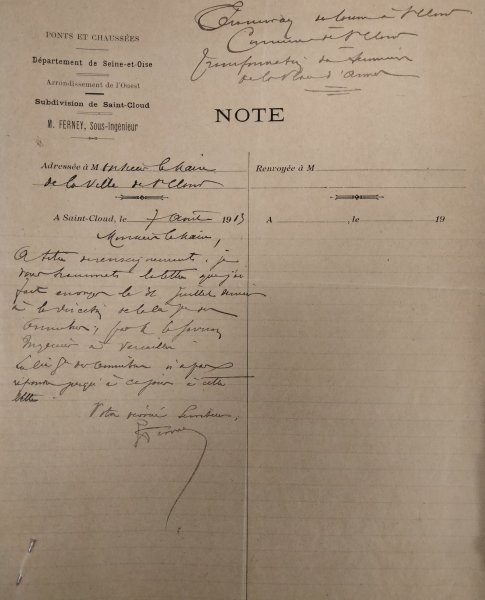 PONTS ET CHAUSSÉES
Département de Seine-et-Oise
Arrondissement de l'Ouest
Subdivision de Saint-Cloud
M. FERNEY, Sous-Ingénieur
Tramway du Louvre à St Cloud
Commune de St Cloud
Transformation du Terminus
de la Place d'Armes
NOTE
Adressée à Monsieur le Maire
de la Ville de St Cloud
A Saint-Cloud, le 7 Août 1913
Monsieur le Maire,
A titre de renseignements, je
vous transmets la lettre que j'ai
fait envoyer le 31 Juillet dernier
à la direction de la Cie des
Omnibus, par M. le
Ingénieur à Versailles
La Cie Gle des Omnibus n'a pas
répondu jusqu'à ce jour à cette
lettre.
Votre dévoué Serviteur,
Ferney
Renvoyée à M
A , le 19